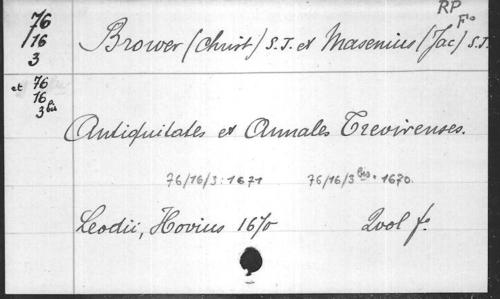 RP
Fo
76
/16
3
Brower (Christ) S.J. et Masenius (Jac) S.J.
et 76
16
3 bis
Antiquitates et Annales Trevirenses.
76/16/3: 1671 76/16/3 bis: 1670.
Leodii, Hovius 1670 2 vol fo.